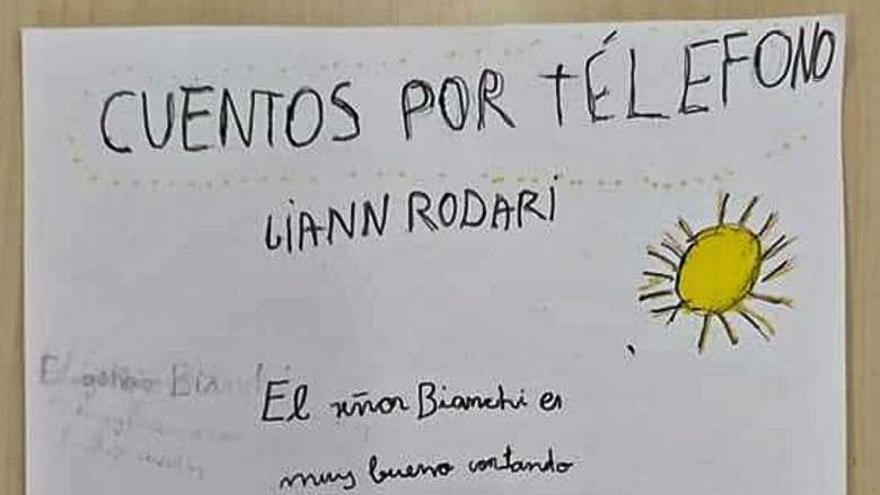 CUENTOS POR TÉLEFONO
GIANN RODARI
El señor Bianchi es
muy bueno contando